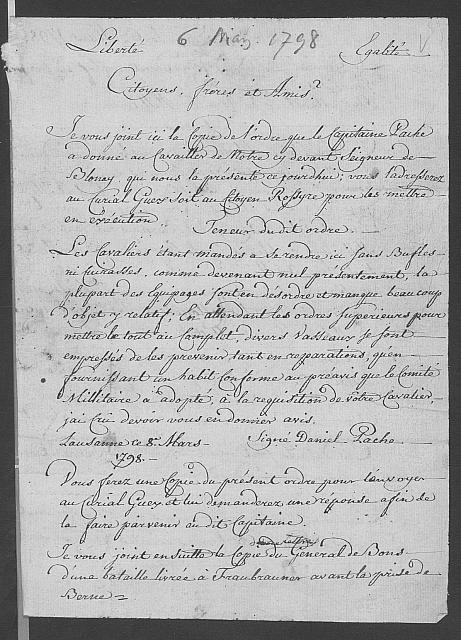 Liberté 6 Mars 1798 Egalité
Citoyens, fréres et Amis.
Je vous joint ici la Copie de l'ordre que le Capitaine Pache
a donné au Cavailler de Notre cy devant Seigneur de
Blonay qui nous la presente ce jourdhui; vous l'adresserez
au Curial Guex soit au Citoyen Rossyre pour les mettre
en exécution. Teneur du dit ordre.
Les Cavaliers étant mandés a se rendre ici sans Bufles
ni Cuirasses, comme devenant nul presentement, la
plupart des Equipages sont en désordre et manque beaucoup
d'objet y relatif; En attendant les ordres Superieurs pour
mettre le tout au Complet, divers Vassaux se sont
empressés de les prevenir tant en reparations, qu'en
fournissant un habit Conforme au préavis que le Comité
Millitaire a adopté, à la requisition de vôtre Cavalier,
jai Crû devoir vous en donner avis.
Lausanne ce 8e. Mars Signé Daniel Pache.
1798.
Vous ferez une Copie du présent ordre pour l'envoyer
au Curial Guex et lui demanderez une réponse afin de
la faire parvenir au dit Capitaine.
Je vous joint ensuitte la Copie du General de Bons
d'une bataille livrée à Fraubrauner avant la prise de
Berne =